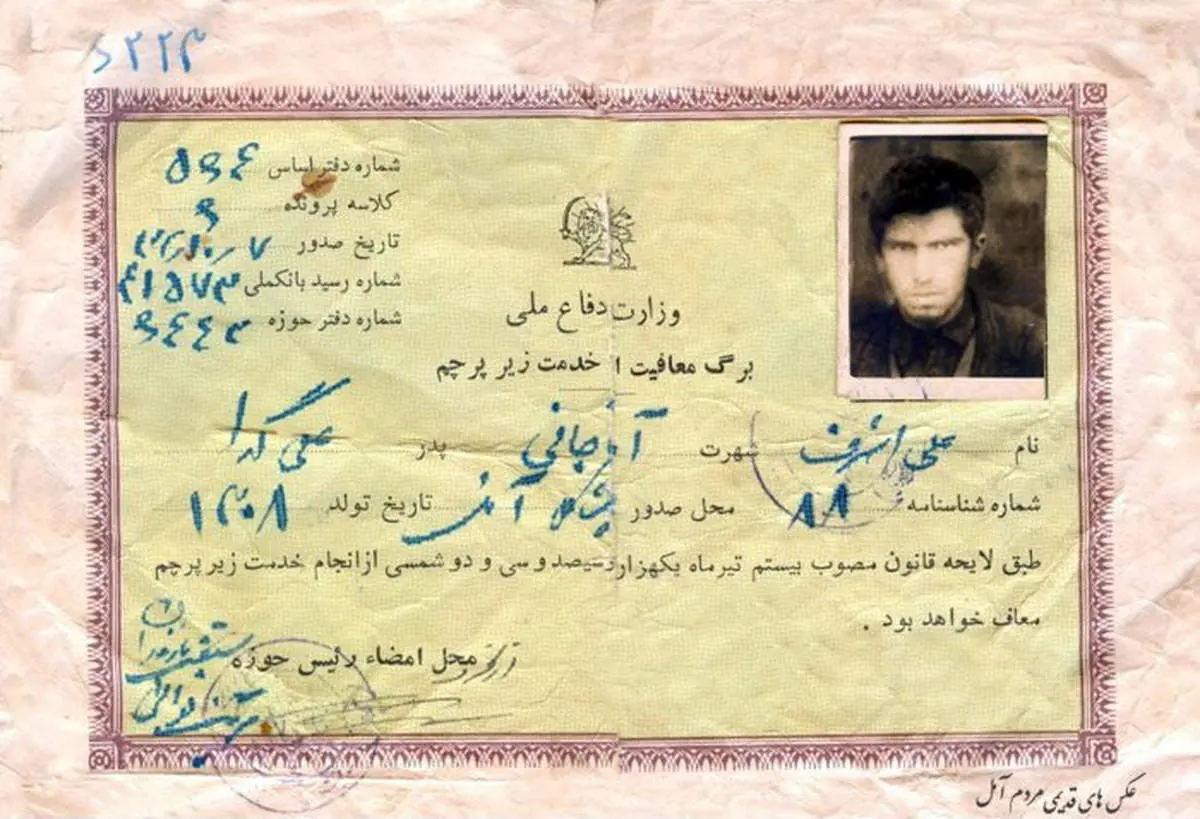 ۲۲۳
شماره دفتر اساس ۵۶۴
کلاسه پرونده ۶
تاریخ صدور
شماره رسید بانکملی ۴۱۵۷۳
شماره دفتر حوزه ۶۴۴۳
وزارت دفاع ملی
برگ معافیت از خدمت زیر پرچم
نام علی اشرف شهرت آقاجانی پدر علی گدا
شماره شناسنامه ۸۸ محل صدور آمل تاریخ تولد ۱۳۰۸
طبق لایحه قانون مصوب بیستم تیرماه یکهزاروسیصد و سی و دو شمسی از انجام خدمت زیر پرچم
معاف خواهد بود .
محل امضاء رئیس حوزه
عکس های قدیمی مردم آمل